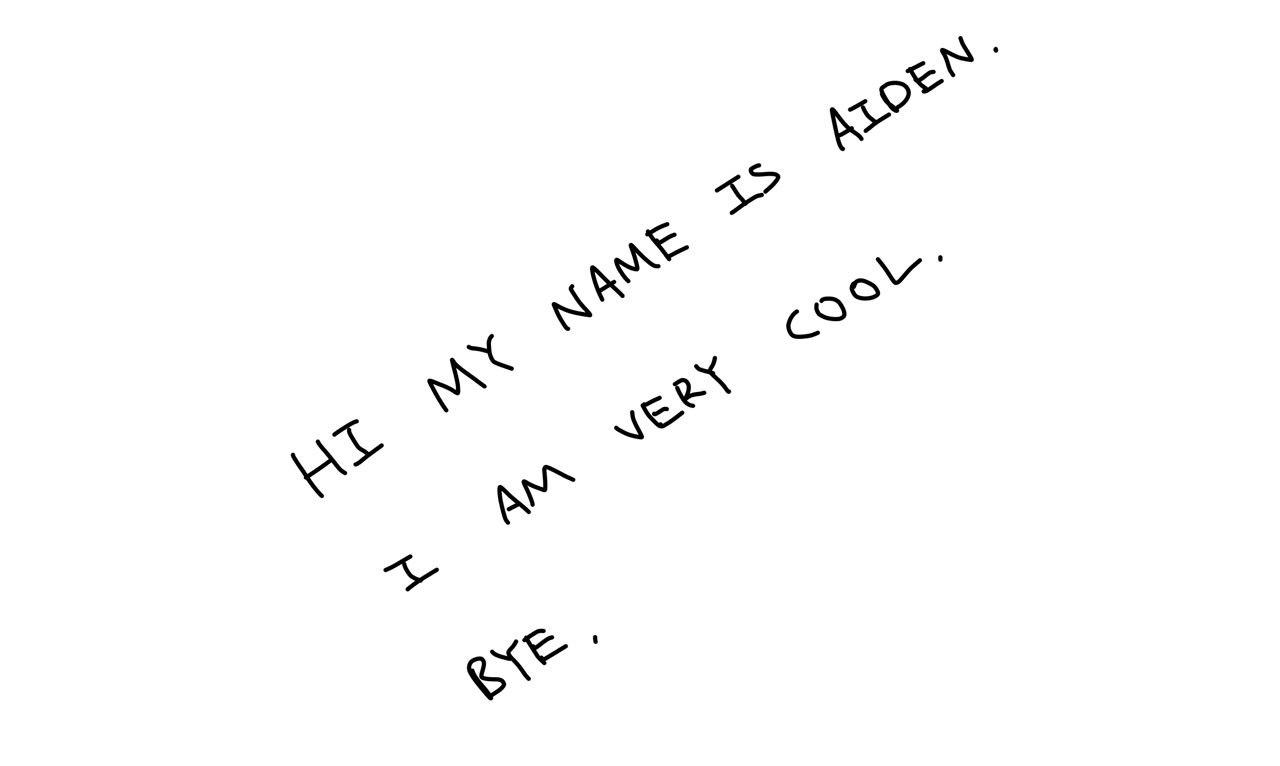 HI MY NAME IS AIDEN.
I AM VERY COOL.
BYE.